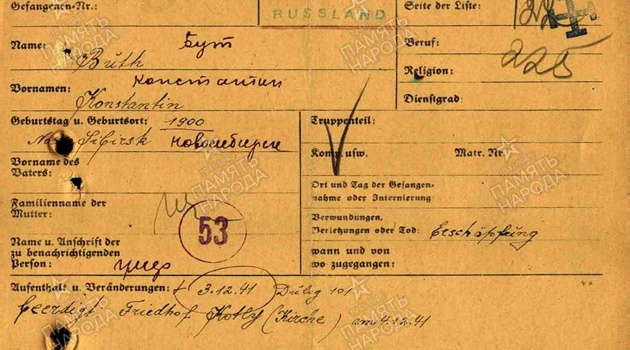 Gefangenen-Nr.:
RUSSLAND
Seite der Liste:
Name: Бут
Bŭth
Beruf:
225
Religion:
Vornamen: Константин
Konstantin
Dienstgrad:
Geburtstag u. Geburtsort: 1900
Sibirsk Новосибирск
Truppenteil:
Komp. usw. Matr. Nr.
Vorname des
Vaters:
Familienname der
Mutter:
53
Name u. Anschrift der
zu benachrichtigenden
Person:
Ort und Tag der Gefangen-
nahme oder Internierung
Verwundungen,
Verletzungen oder Tod: Erschöpfung
wann und von
wo zugegangen:
Aufenthalt u. Veränderungen: † 3.12.41 Dulag 101
beerdigt Friedhof Kotly (Kirche) am 4.12.41
ПАМЯТЬ
НАРОДА